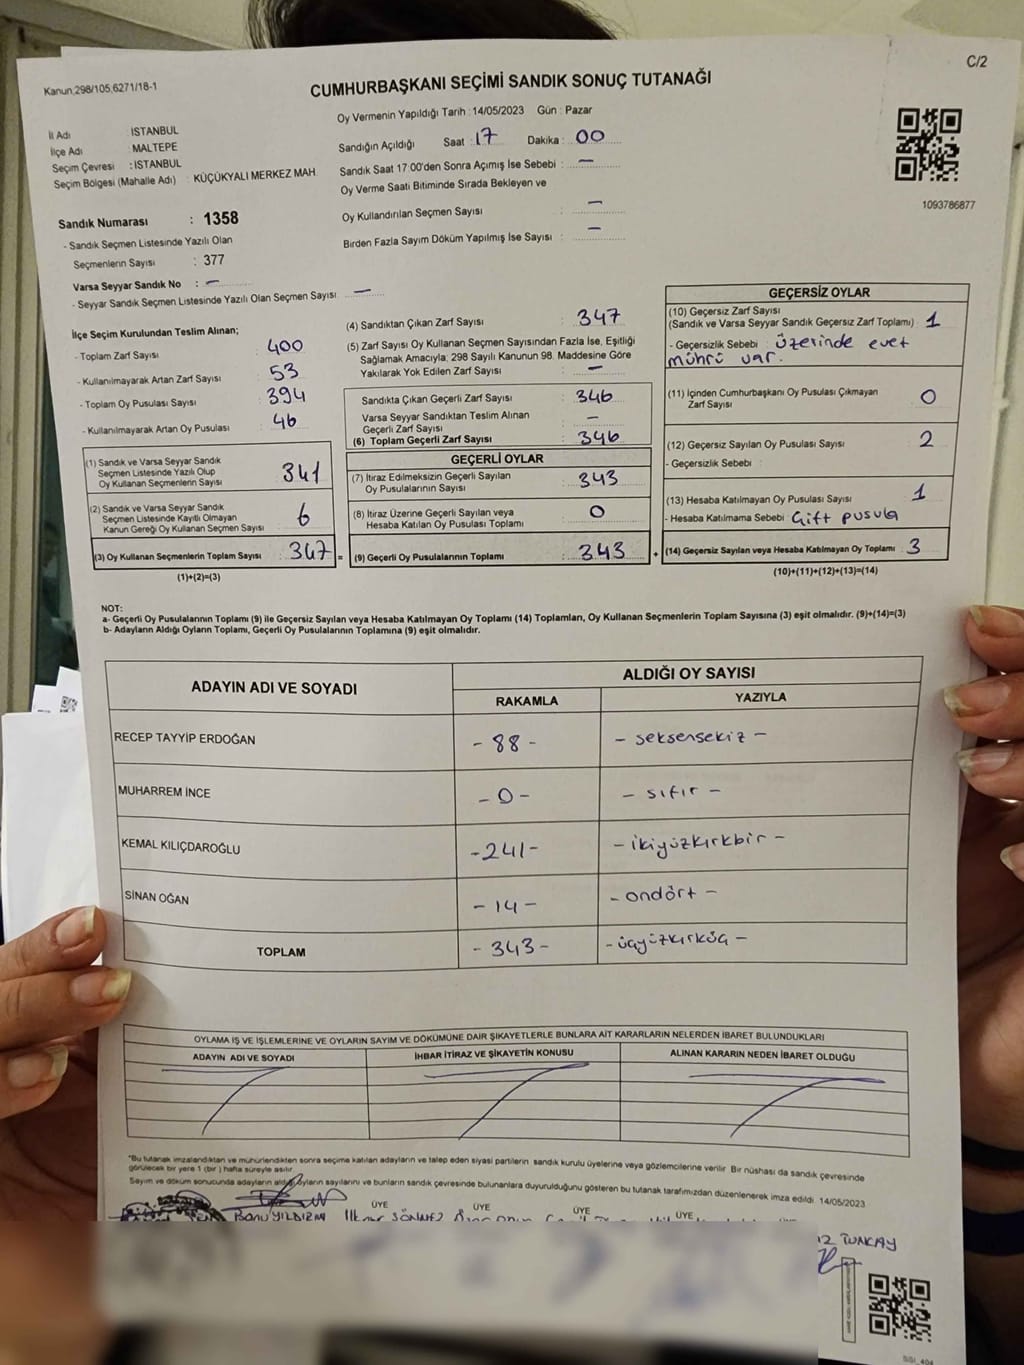 C/2
Kanun,298/105,6271/18-1
CUMHURBAŞKANI SEÇİMİ SANDIK SONUÇ TUTANAĞI
Oy Vermenin Yapıldığı Tarih : 14/05/2023 Gün : Pazar
İl Adı : İSTANBUL
İlçe Adı : MALTEPE
Seçim Çevresi : İSTANBUL
Seçim Bölgesi (Mahalle Adı) : KÜÇÜKYALI MERKEZ MAH.
Sandığın Açıldığı Saat : 17 Dakika : 00
Sandık Saat 17:00'den Sonra Açımış İse Sebebi : —
Oy Verme Saati Bitiminde Sırada Bekleyen ve
Oy Kullandırılan Seçmen Sayısı : —
Birden Fazla Sayım Döküm Yapılmış İse Sayısı : —
1093786877
Sandık Numarası : 1358
- Sandık Seçmen Listesinde Yazılı Olan
Seçmenlerin Sayısı : 377
Varsa Seyyar Sandık No : —
- Seyyar Sandık Seçmen Listesinde Yazılı Olan Seçmen Sayısı : —
İlçe Seçim Kurulundan Teslim Alınan;
- Toplam Zarf Sayısı : 400
- Kullanılmayarak Artan Zarf Sayısı : 53
- Toplam Oy Pusulası Sayısı : 394
- Kullanılmayarak Artan Oy Pusulası : 46
(1) Sandık ve Varsa Seyyar Sandık
Seçmen Listesinde Yazılı Olup
Oy Kullanan Seçmenlerin Sayısı : 341
(2) Sandık ve Varsa Seyyar Sandık
Seçmen Listesinde Kayıtlı Olmayan
Kanun Gereği Oy Kullanan Seçmen Sayısı : 6
(3) Oy Kullanan Seçmenlerin Toplam Sayısı : 347 =
(1)+(2)=(3)
(4) Sandıktan Çıkan Zarf Sayısı : 347
(5) Zarf Sayısı Oy Kullanan Seçmen Sayısından Fazla İse, Eşitliği
Sağlamak Amacıyla; 298 Sayılı Kanunun 98. Maddesine Göre
Yakılarak Yok Edilen Zarf Sayısı : —
Sandıkta Çıkan Geçerli Zarf Sayısı : 346
Varsa Seyyar Sandıktan Teslim Alınan
Geçerli Zarf Sayısı : —
(6) Toplam Geçerli Zarf Sayısı : 346
GEÇERLİ OYLAR
(7) İtiraz Edilmeksizin Geçerli Sayılan
Oy Pusulalarının Sayısı : 343
(8) İtiraz Üzerine Geçerli Sayılan veya
Hesaba Katılan Oy Pusulası Toplamı : 0
(9) Geçerli Oy Pusulalarının Toplamı : 343 +
GEÇERSİZ OYLAR
(10) Geçersiz Zarf Sayısı
(Sandık ve Varsa Seyyar Sandık Geçersiz Zarf Toplamı) : 1
- Geçersizlik Sebebi : üzerinde evet
mührü var.
(11) İçinden Cumhurbaşkanı Oy Pusulası Çıkmayan
Zarf Sayısı : 0
(12) Geçersiz Sayılan Oy Pusulası Sayısı : 2
- Geçersizlik Sebebi :
(13) Hesaba Katılmayan Oy Pusulası Sayısı : 1
- Hesaba Katılmama Sebebi : Çift pusula
(14) Geçersiz Sayılan veya Hesaba Katılmayan Oy Toplamı : 3
(10)+(11)+(12)+(13)=(14)
NOT:
a- Geçerli Oy Pusulalarının Toplamı (9) ile Geçersiz Sayılan veya Hesaba Katılmayan Oy Toplamı (14) Toplamları, Oy Kullanan Seçmenlerin Toplam Sayısına (3) eşit olmalıdır. (9)+(14)=(3)
b- Adayların Aldığı Oyların Toplamı, Geçerli Oy Pusulalarının Toplamına (9) eşit olmalıdır.
ADAYIN ADI VE SOYADI ALDIĞI OY SAYISI
RAKAMLA YAZIYLA
RECEP TAYYİP ERDOĞAN - 88 - - seksensekiz -
MUHARREM İNCE - 0 - - sıfır -
KEMAL KILIÇDAROĞLU - 241 - - ikiyüzkırkbir -
SİNAN OĞAN - 14 - - ondört -
TOPLAM - 343 - - üçyüzkırküç -
OYLAMA İŞ VE İŞLEMLERİNE VE OYLARIN SAYIM VE DÖKÜMÜNE DAİR ŞİKAYETLERLE BUNLARA AİT KARARLARIN NELERDEN İBARET BULUNDUKLARI
ADAYIN ADI VE SOYADI İHBAR İTİRAZ VE ŞİKAYETİN KONUSU ALINAN KARARIN NEDEN İBARET OLDUĞU
"Bu tutanak imzalandıktan ve mühürlendikten sonra seçime katılan adayların ve talep eden siyasi partilerin sandık kurulu üyelerine veya gözlemcilerine verilir Bir nüshası da sandık çevresinde
görülecek bir yere 1 (bir ) hafta süreyle asılır.
Sayım ve döküm sonucunda adayların aldığı oyların sayılarını ve bunların sandık çevresinde bulunanlara duyurulduğunu gösteren bu tutanak tarafımızdan düzenlenerek imza edildi 14/05/2023
ÜYE ÜYE ÜYE ÜYE
Banu YILDIRIM İlknur SÖNMEZ
TUNCAY